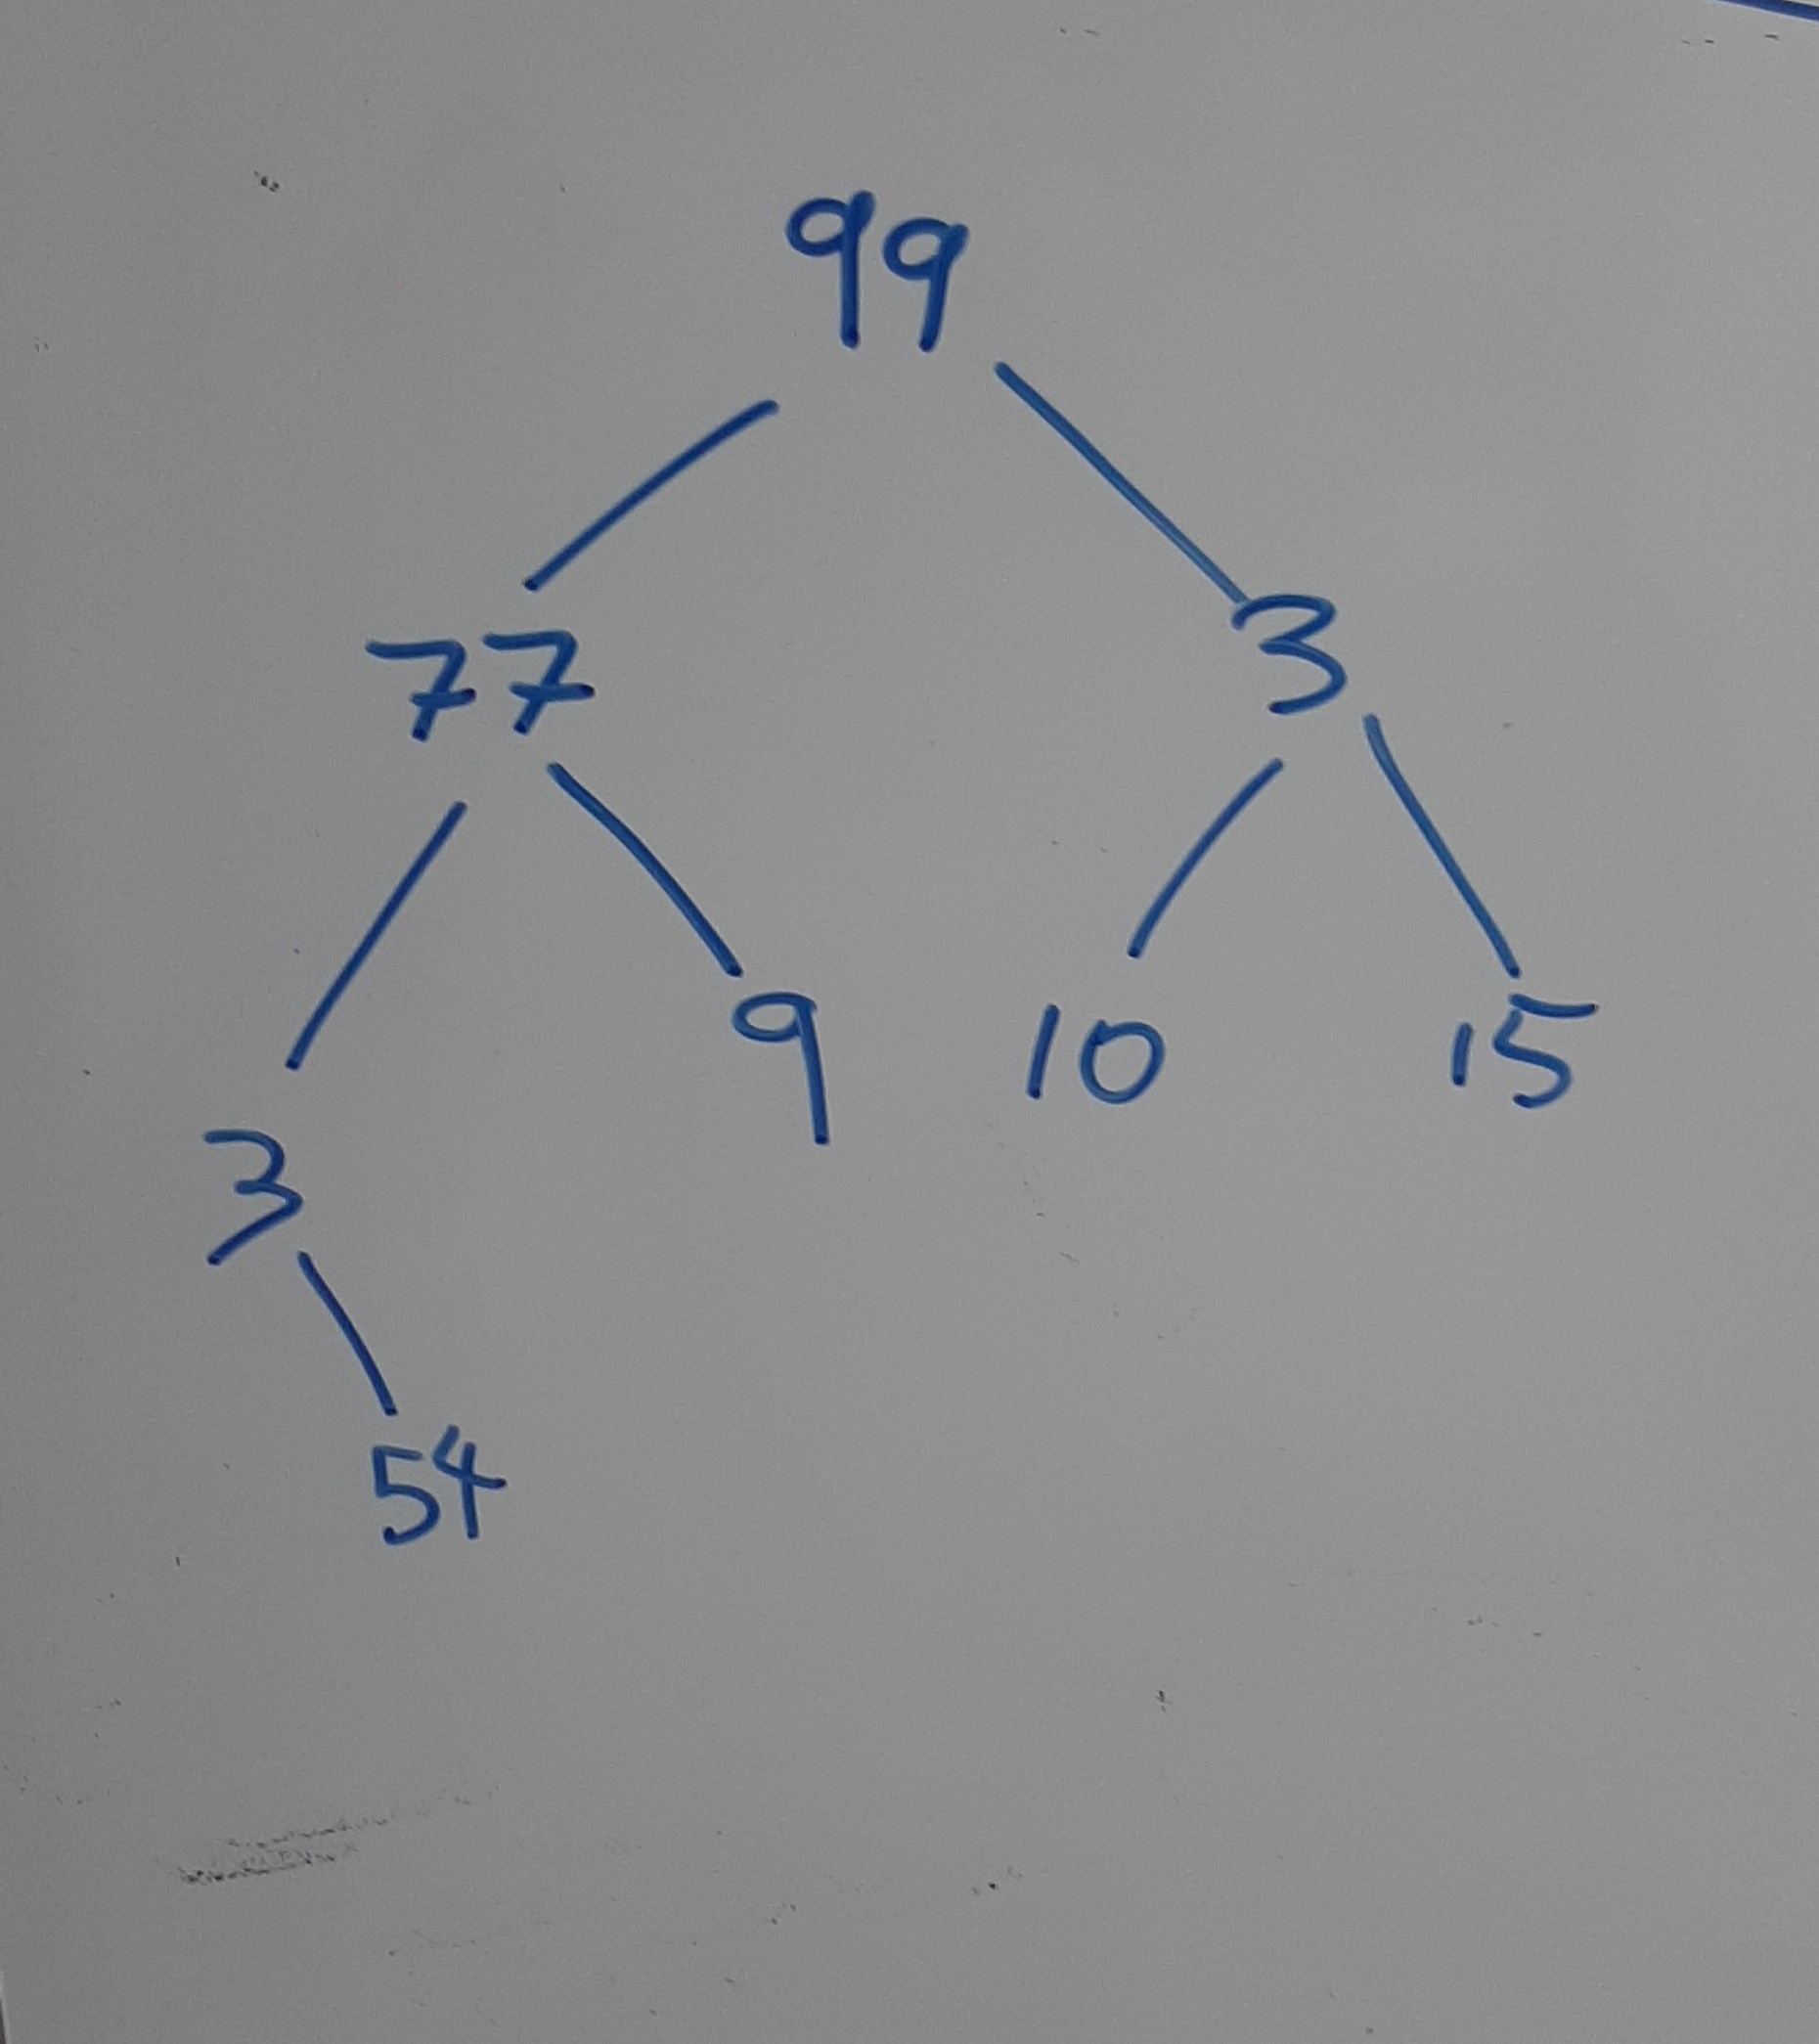 99
77 3
3 9 10 15
54